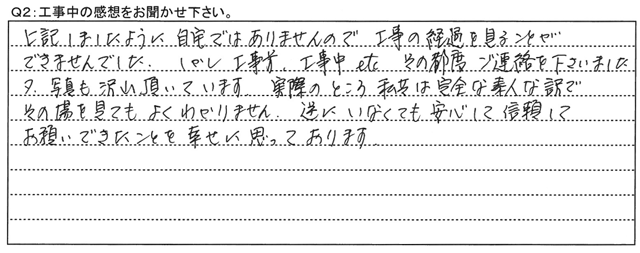 Q2：工事中の感想をお聞かせ下さい。
上記しましたように 自宅ではありませんので 工事の経過を見ることが
できませんでした. しかし 工事前, 工事中 etc その都度 ご連絡を下さいました
又. 写真も沢山頂いています. 実際のところ 私共は完全な素人な訳で
その場を見ても よくわかりません. 逆に いなくても 安心して 信頼して
お願いできたことを 幸せに思っております.